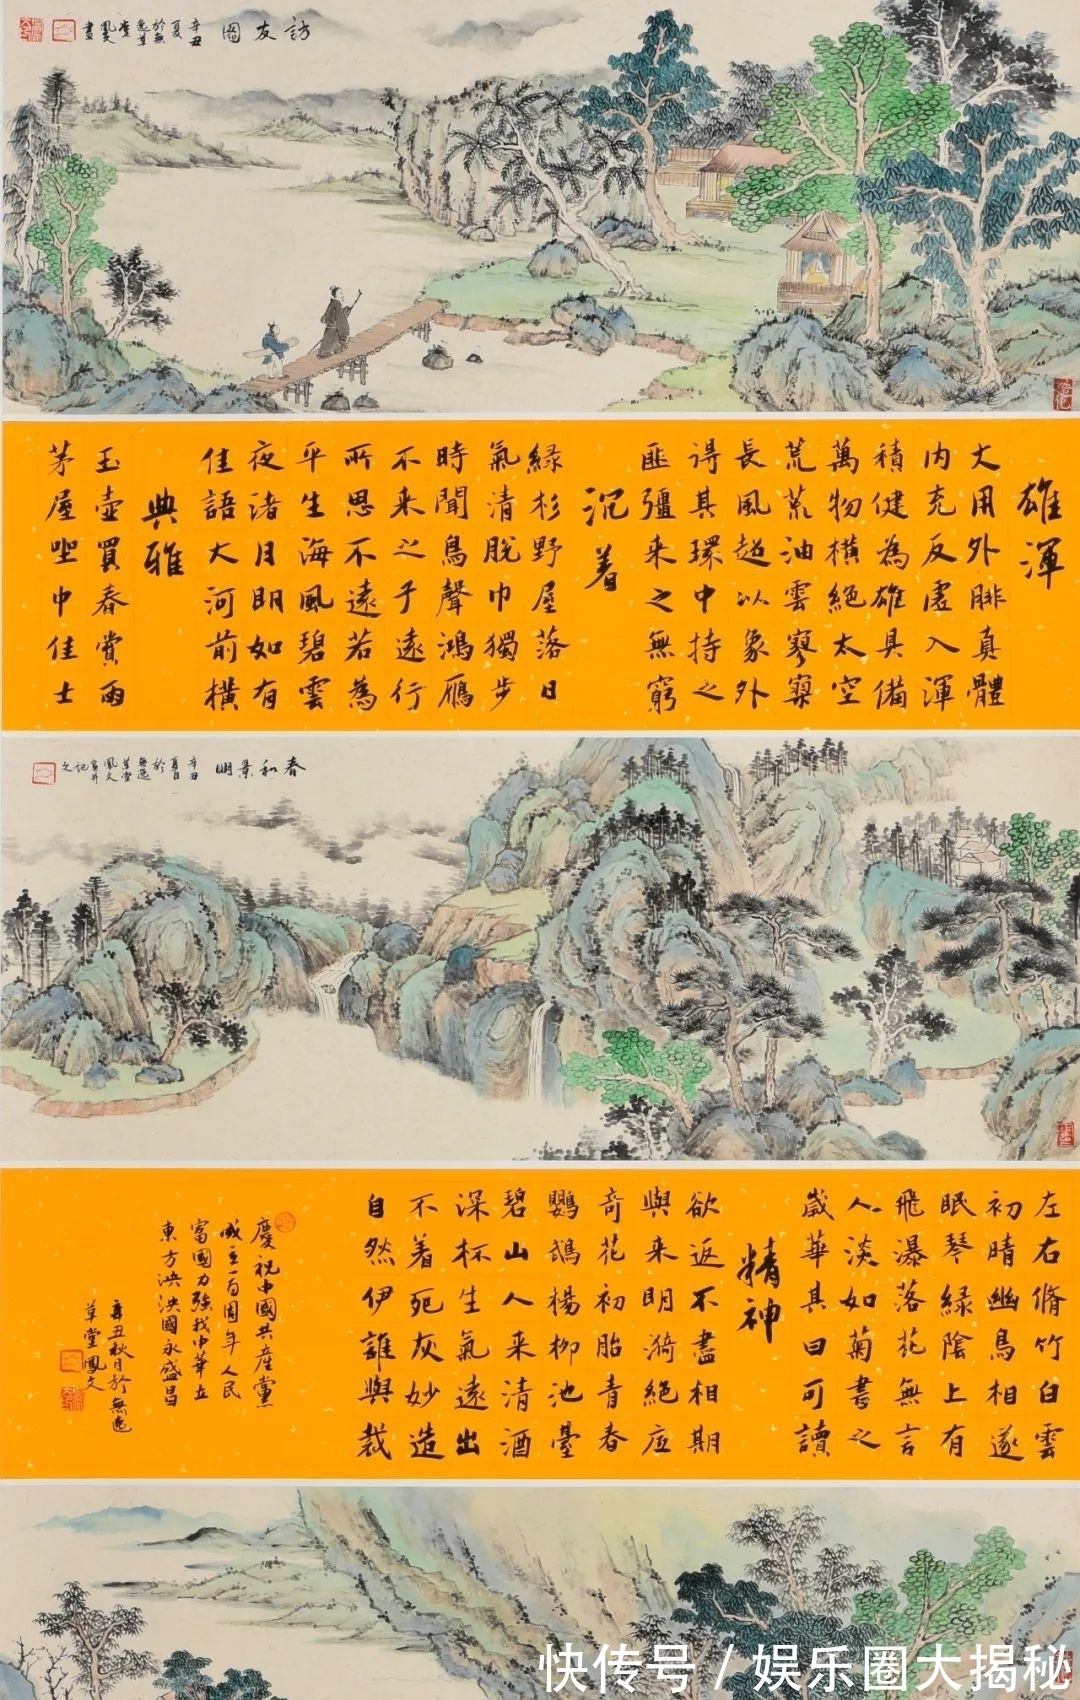 訪友圖
辛丑
夏
於無
逸草
堂
鳳文
畫
雄渾
大用外腓真體
内充反虛入渾
積健為雄具備
萬物橫絕太空
荒荒油雲寥寥
長風超以象外
得其環中持之
匪彊来之無窮
沉着
綠杉野屋落日
氣清脫巾獨步
時聞鳥聲鴻雁
不来之子遠行
所思不遠若為
平生海風碧雲
夜渚月明如有
佳語大河前橫
典雅
玉壺買春賞雨
茅屋坐中佳士
春和景明
辛丑
夏日
於
無逸
草堂
鳳文
畫并
記
之
左右脩竹白雲
初晴幽鳥相逐
眠琴綠陰上有
飛瀑落花無言
人淡如菊書之
歲華其曰可讀
精神
欲返不盡相期
與来明漪絕底
奇花初胎青春
鸚鵡楊柳池臺
碧山人来清酒
深杯生氣遠出
不着死灰妙造
自然伊誰與裁
慶祝中國共產黨
成立一百周年人民
富國力強我中華立
東方泱泱國永盛昌
辛丑秋月於無逸
草堂鳳文
快传号 / 娱乐圈大揭秘